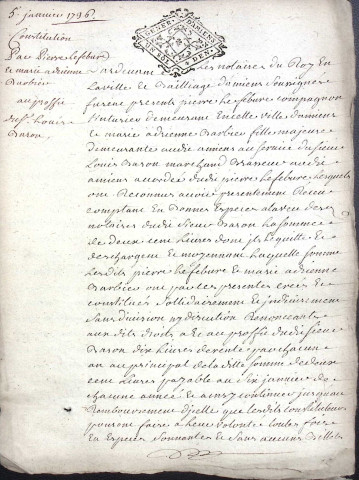 5e janvier 1736
Constitution
Par Pierre lefebure
et marie adrienne
Barbier
au proffit
de Sr louis
Baron
Pardevant les notaires du Roy En
la ville et Bailliage d'amiens soussignez
furent presents pierre lefebure compagnon
demeurant En celle ville d'amiens
et marie adrienne Barbier fille majeure
demeurante audit amiens au service du sieur
Louis Baron marchand Brasseur audit
amiens accordée dudit pierre lefebure lesquels
ont Reconnus avoir presentement Receu
comptant En Bonnes Especes a la veue des
notaires dudit sieur Baron la somme
de deux cent livres dont ils le quitte et
deschargent et moyennant laquelle somme
lesdits pierre lefebure et marie adrienne
Barbier ont par les presentes creés et
constitués sollidairement et indivisement
sans division ny discution Renonceant
auxdits droits et au proffit dudit sieur
Baron dix livres de rente par chacun
an au principal de ladite somme de deux
cent livres payable au six janvier de
chacune année et ainsy continuer jusqu'au
Rembourcement d'icelle que lesdits constituteurs
pouront faire a leure volonté toutes fois
En Especes sonnantes et sans aucuns Billets